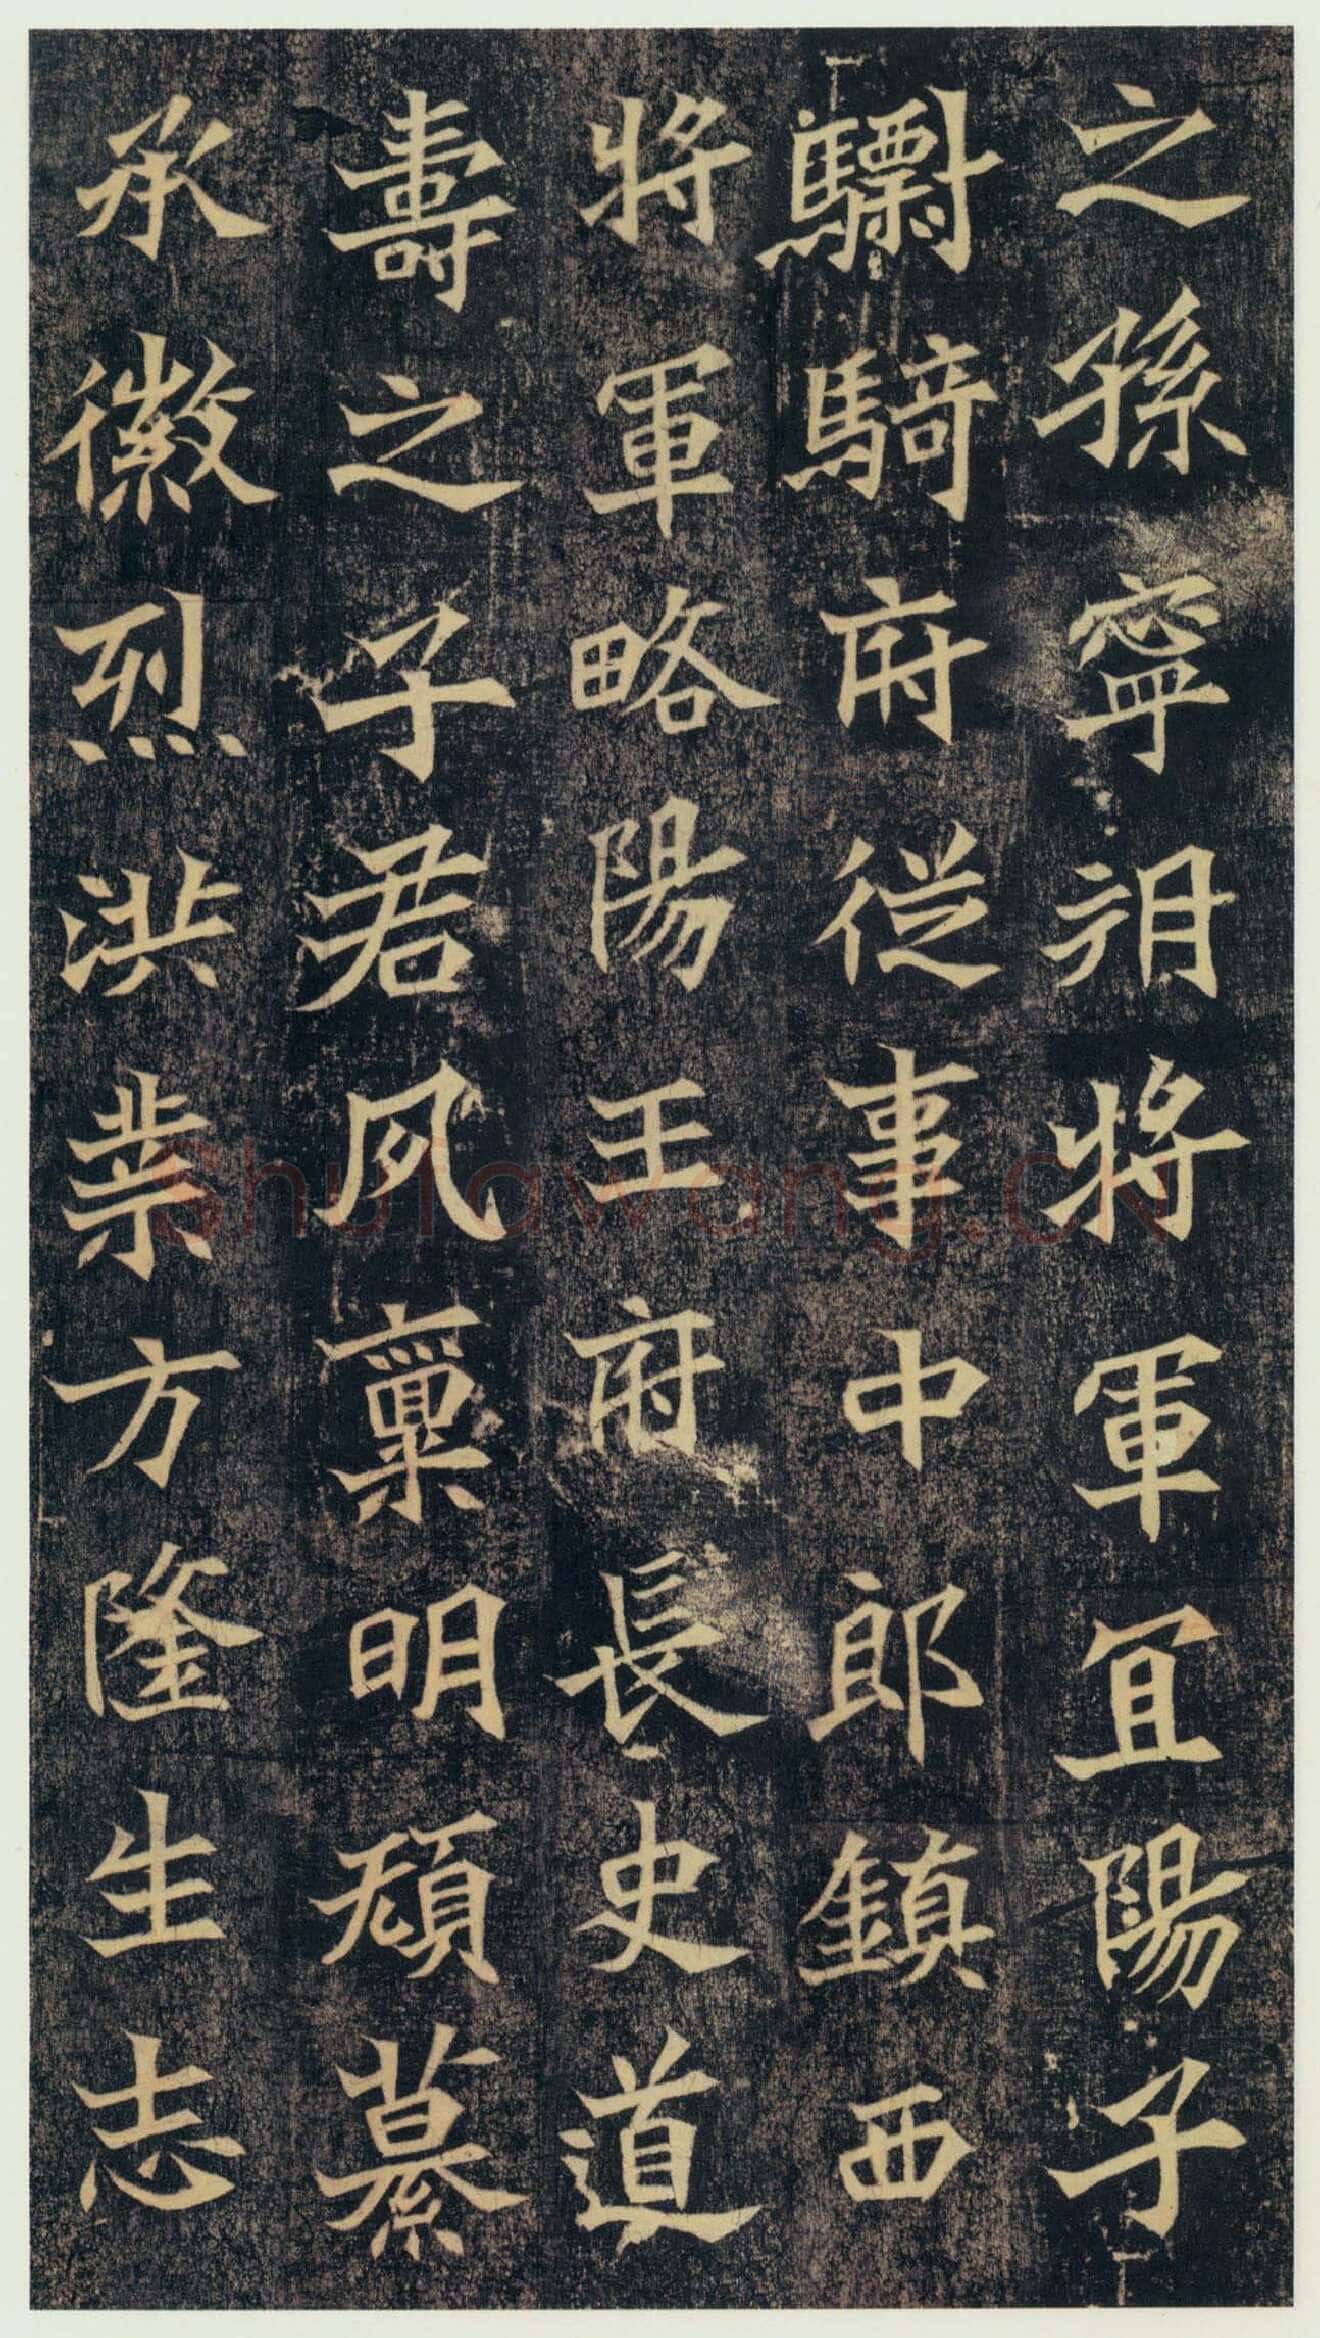 之孫寧朔將軍冝陽子
驃騎府從事中郎鎮西
將軍略陽王府長史道
壽之子君夙稟明穎纂
承徽烈洪業方隆生志
Shufawang.CN